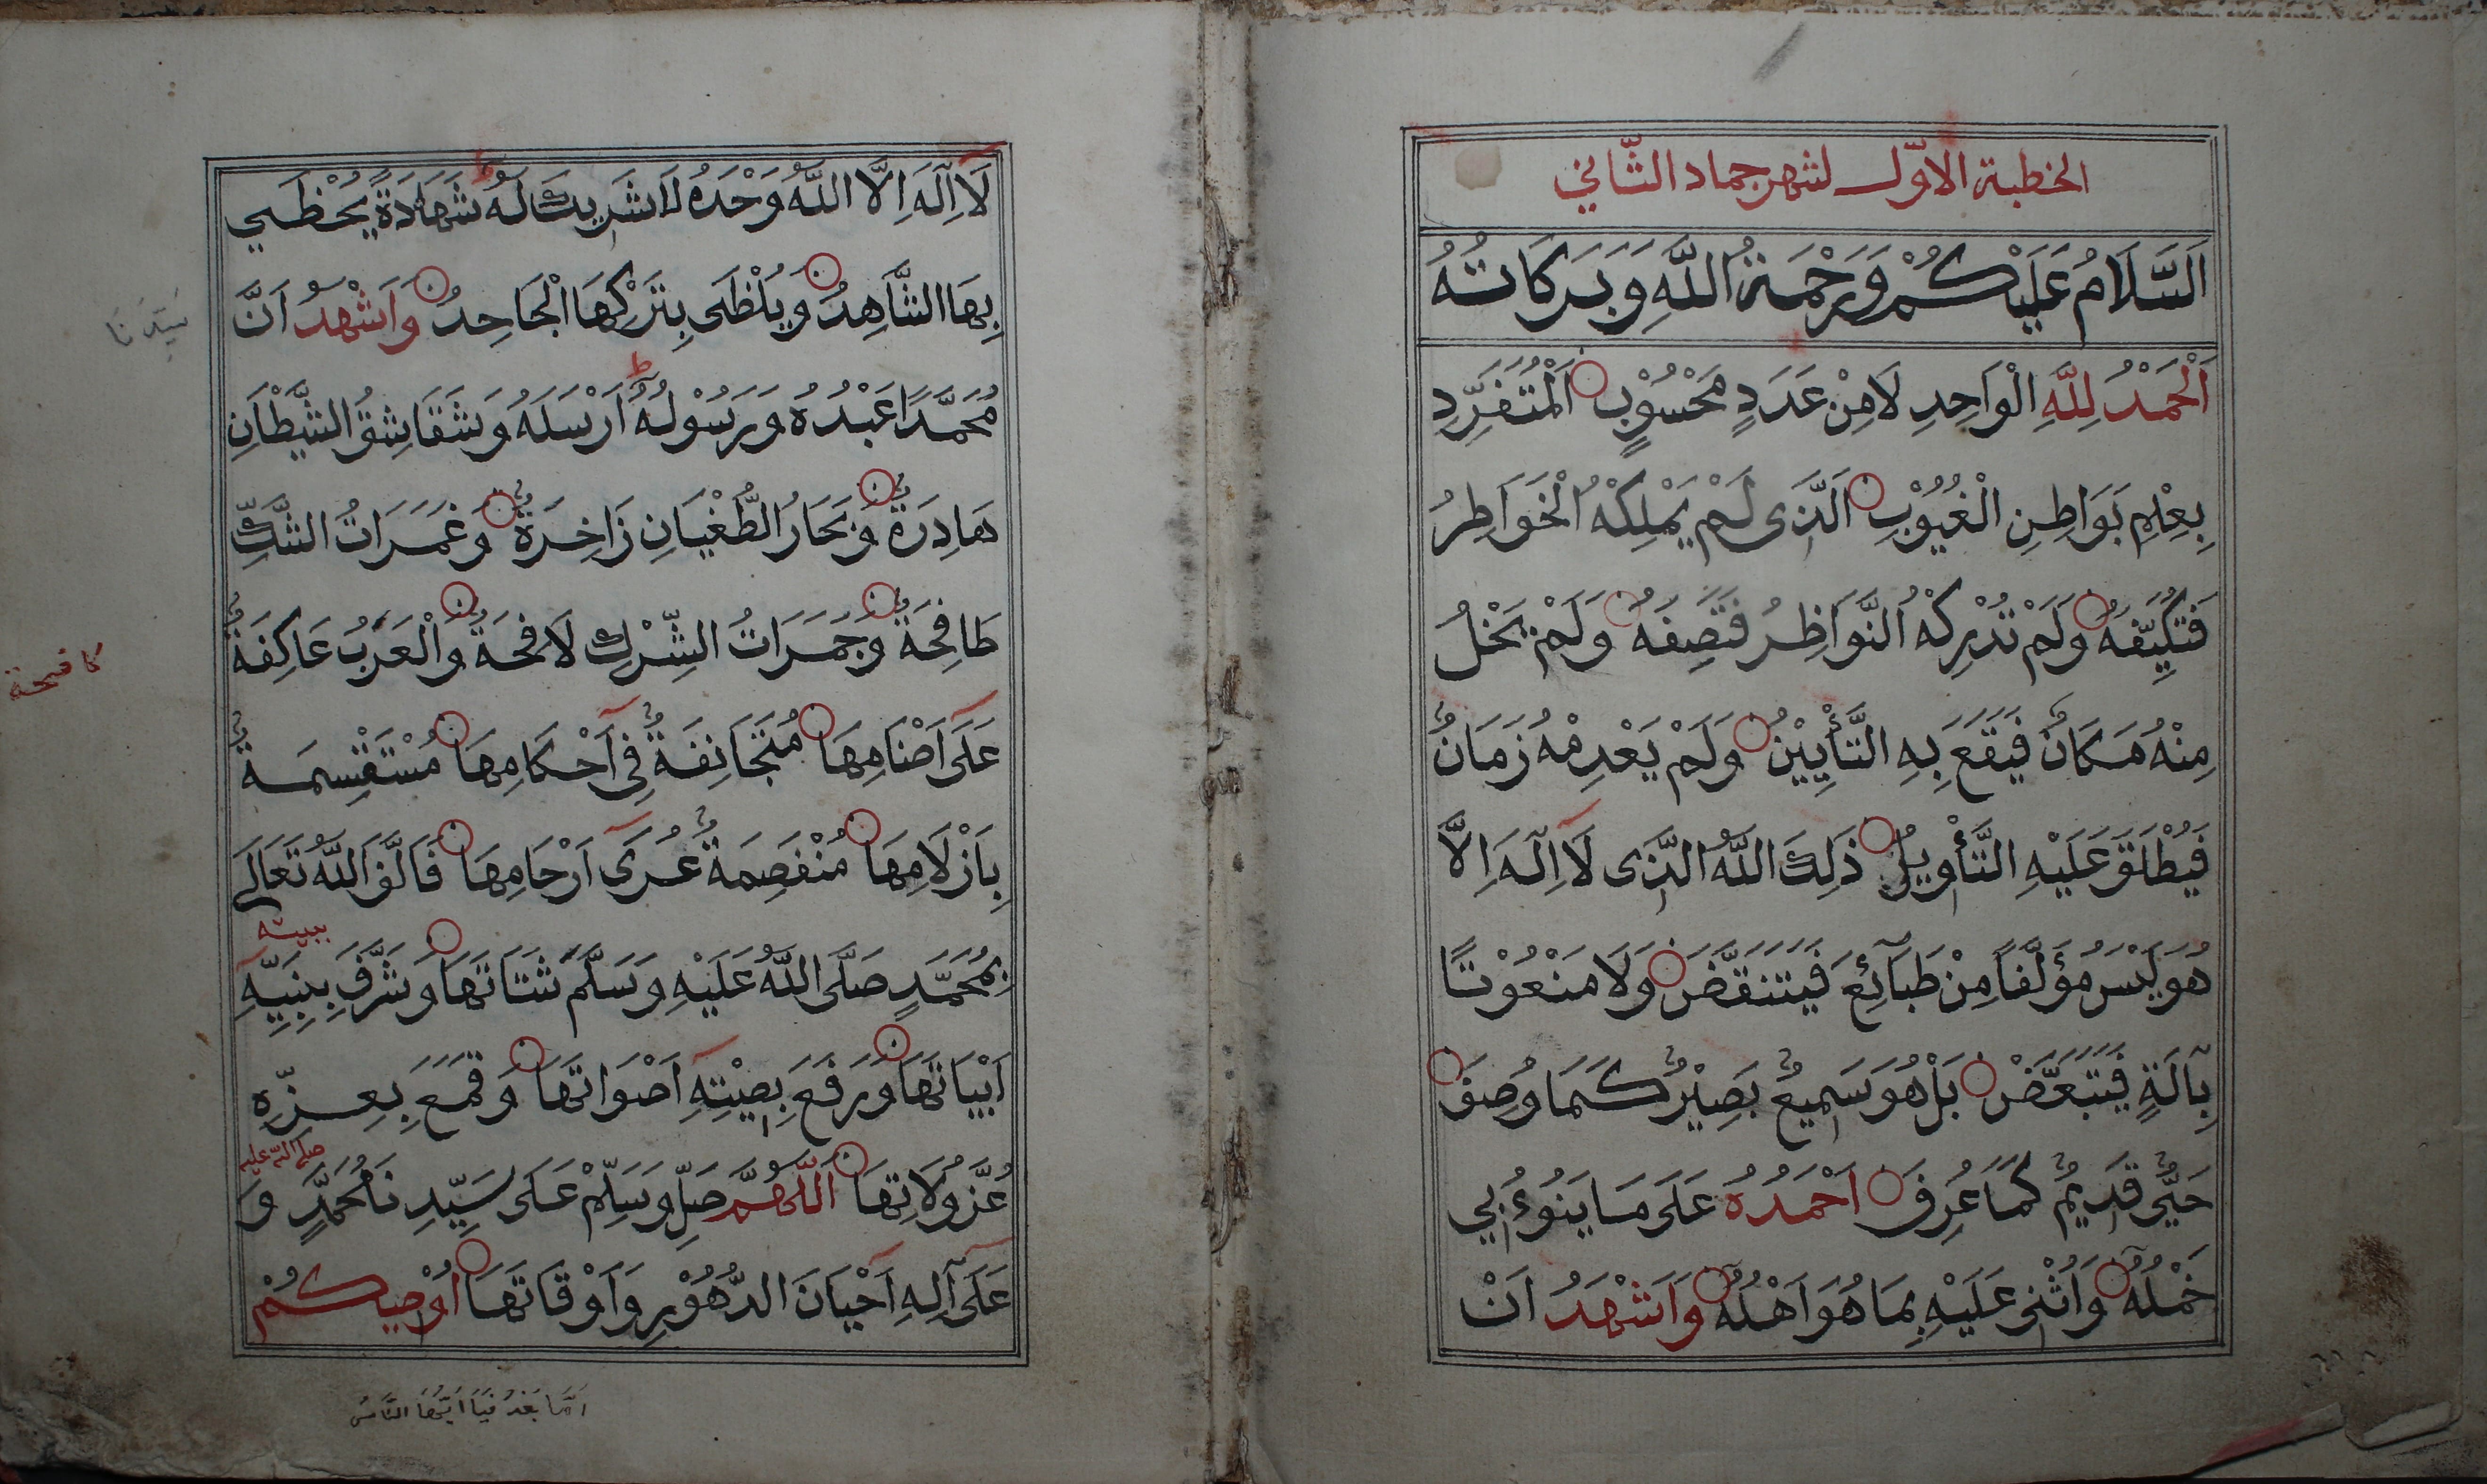 الخطبة الاوّل لشهر جماد الثّاني
اَلسَّلَامُ عَلَيْكُمْ وَرَحْمَةُ اللّٰهِ وَبَرَكَاتُهُ
اَلْحَمْدُ لِلّٰهِ الْوَاحِدِ لَا مِنْ عَدَدٍ مَحْسُوْبٍ اَلْمُتَفَرِّدِ
بِعِلْمِ بَوَاطِنِ الْغُيُوْبِ اَلَّذِى لَمْ يَمْلِكْهُ الْخَوَاطِرُ
فَتُكَيِّفَهُ وَلَمْ تُدْرِكْهُ النَّوَاظِرُ فَتَصِفَهُ وَلَمْ يَخْلُ
مِنْهُ مَكَانٌ فَيَقَعَ بِهِ التَّأْيِيْنُ وَلَمْ يَعْدِمْهُ زَمَانٌ
فَيُطْلَقَ عَلَيْهِ التَّأْوِيلُ ذَلِكَ اللّٰهُ الَّذِى لَا اِلٰهَ اِلَّا
هُوَ لَيْسَ مُؤَلَّفًا مِنْ طَبَآئِعَ فَيَتَنَقَّضَ وَلَا مَنْعُوْتًا
بِآلَةٍ فَيَتَبَعَّضَ بَلْ هُوَ سَمِيعٌ بَصِيْرٌ كَمَا وُصِفَ
حَيٌّ قَدِيمٌ كَمَا عُرِفَ اَحْمَدُهُ عَلَى مَا يَنُوْءُ بِي
حَمْلُهُ وَاُثْنِى عَلَيْهِ بِمَا هُوَ اَهْلُهُ وَاَشْهَدُ اَنْ
لَا اِلٰهَ اِلَّا اللّٰهُ وَحْدَهُ لَا شَرِيكَ لَهُ شَهَادَةً يَحْظَى
بِهَا الشَّاهِدُ وَيَلْظَى بِتَرْكِهَا الْجَاحِدُ وَاَشْهَدُ اَنَّ
سَيِّدَنَا
مُحَمَّدًا عَبْدُهُ وَرَسُوْلُهُ اَرْسَلَهُ وَشَقَاشِقُ الشَّيْطَانِ
هَادِرَةٌ وَبَحَارُ الطُّغْيَانِ زَاخِرَةٌ وَغَمَرَاتُ الشَّكِّ
طَافِحَةٌ وَجَمَرَاتُ الشِّرْكِ لَافِحَةٌ وَالْعَرَبُ عَاكِفَةٌ
كافحة
عَلَى اَصْنَامِهَا مُتَجَانِفَةٌ فِي اَحْكَامِهَا مُسْتَقْسِمَةٌ
بِاَزْلَامِهَا مُنْفَصِمَةٌ عُرَى اَرْحَامِهَا فَاَلَّفَ اللّٰهُ تَعَالَى
ببيته
بِمُحَمَّدٍ صَلَّى اللّٰهُ عَلَيْهِ وَسَلَّمَ شَتَاتَهَا وَشَرَّفَ بِنَبِيِّهِ
اَبْيَاتَهَا وَرَفَعَ بِصِيْتِهِ اَصْوَاتَهَا وَقَمَعَ بِعِزِّهِ
صلى الله عليه
عُزَّ وُلَاتِهَا اَللّٰهُمَّ صَلِّ وَسَلِّمْ عَلَى سَيِّدِنَا مُحَمَّدٍ وَ
عَلَى آلِهِ اَحْيَانَ الدُّهُوْرِ وَاَوْقَاتَهَا اُوْصِيكُمْ
اَمَّا بَعْدُ فَيَا اَيُّهَا النَّاسُ